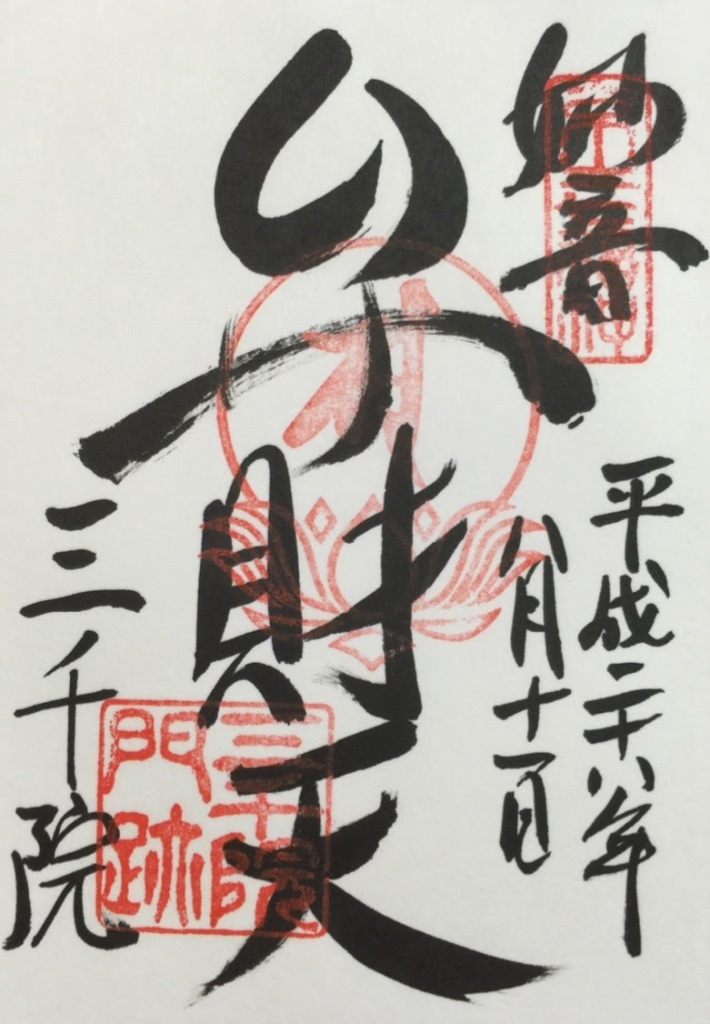 妙音
平成二十八年
八月十一日
弁財天
三千院
三千院
門跡